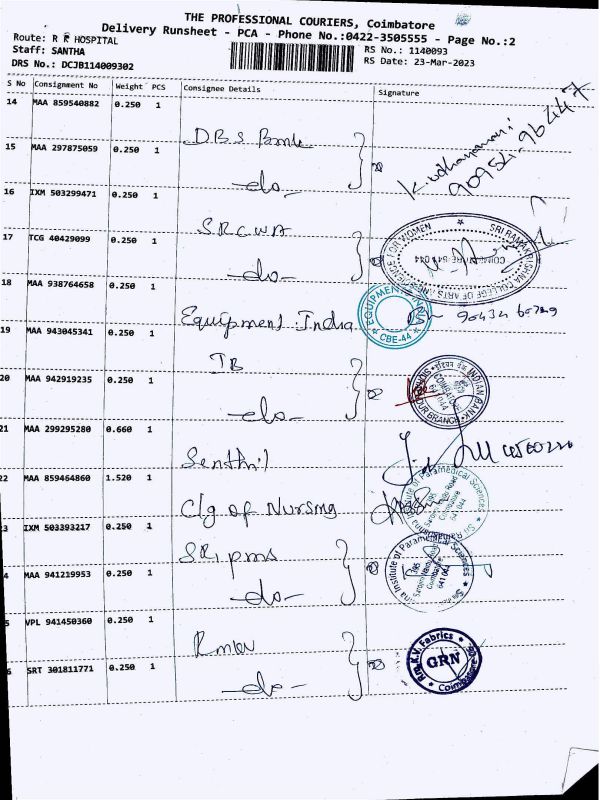 THE PROFESSIONAL COURIERS, Coimbatore
Delivery Runsheet - PCA - Phone No.:0422-3505555 - Page No.:2
Route: R R HOSPITAL
RS No.: 1140093
Staff: SANTHA
RS Date: 23-Mar-2023
DRS No.: DCJB114009302
S No Consignment No Weight PCS Consignee Details Signature
14 MAA 859540882 0.250 1 DBS Bank
90954-96447
15 MAA 297875059 0.250 1 -do-
16 IXM 503299471 0.250 1 SRCWA
SRI RAMAKRISHNA COLLEGE OF ARTS
OR WOMEN
COIMBATORE-641 044
17 TCG 40429099 0.250 1 -do-
18 MAA 938764658 0.250 1 Equipment India
EQUIPMENT
CBE-44
19 MAA 943045341 0.250 1 IB
20 MAA 942919235 0.250 1 -do-
INDIAN BANK
COIMBATORE
641 014
BRANCH
21 MAA 299295280 0.660 1 Senthil
22 MAA 859464860 1.520 1 Clg of Nursing
Institute of Paramedical Sciences
395
Coimbatore
641 044
3 IXM 503393217 0.250 1 SRIPMS
4 MAA 941219953 0.250 1 -do-
Institute of Paramedical Sciences
395
Coimbatore
641 044
5 VPL 941450360 0.250 1
6 SRT 301811771 0.250 1 -do-
K.V. Fabrics
GRN
Coimbatore